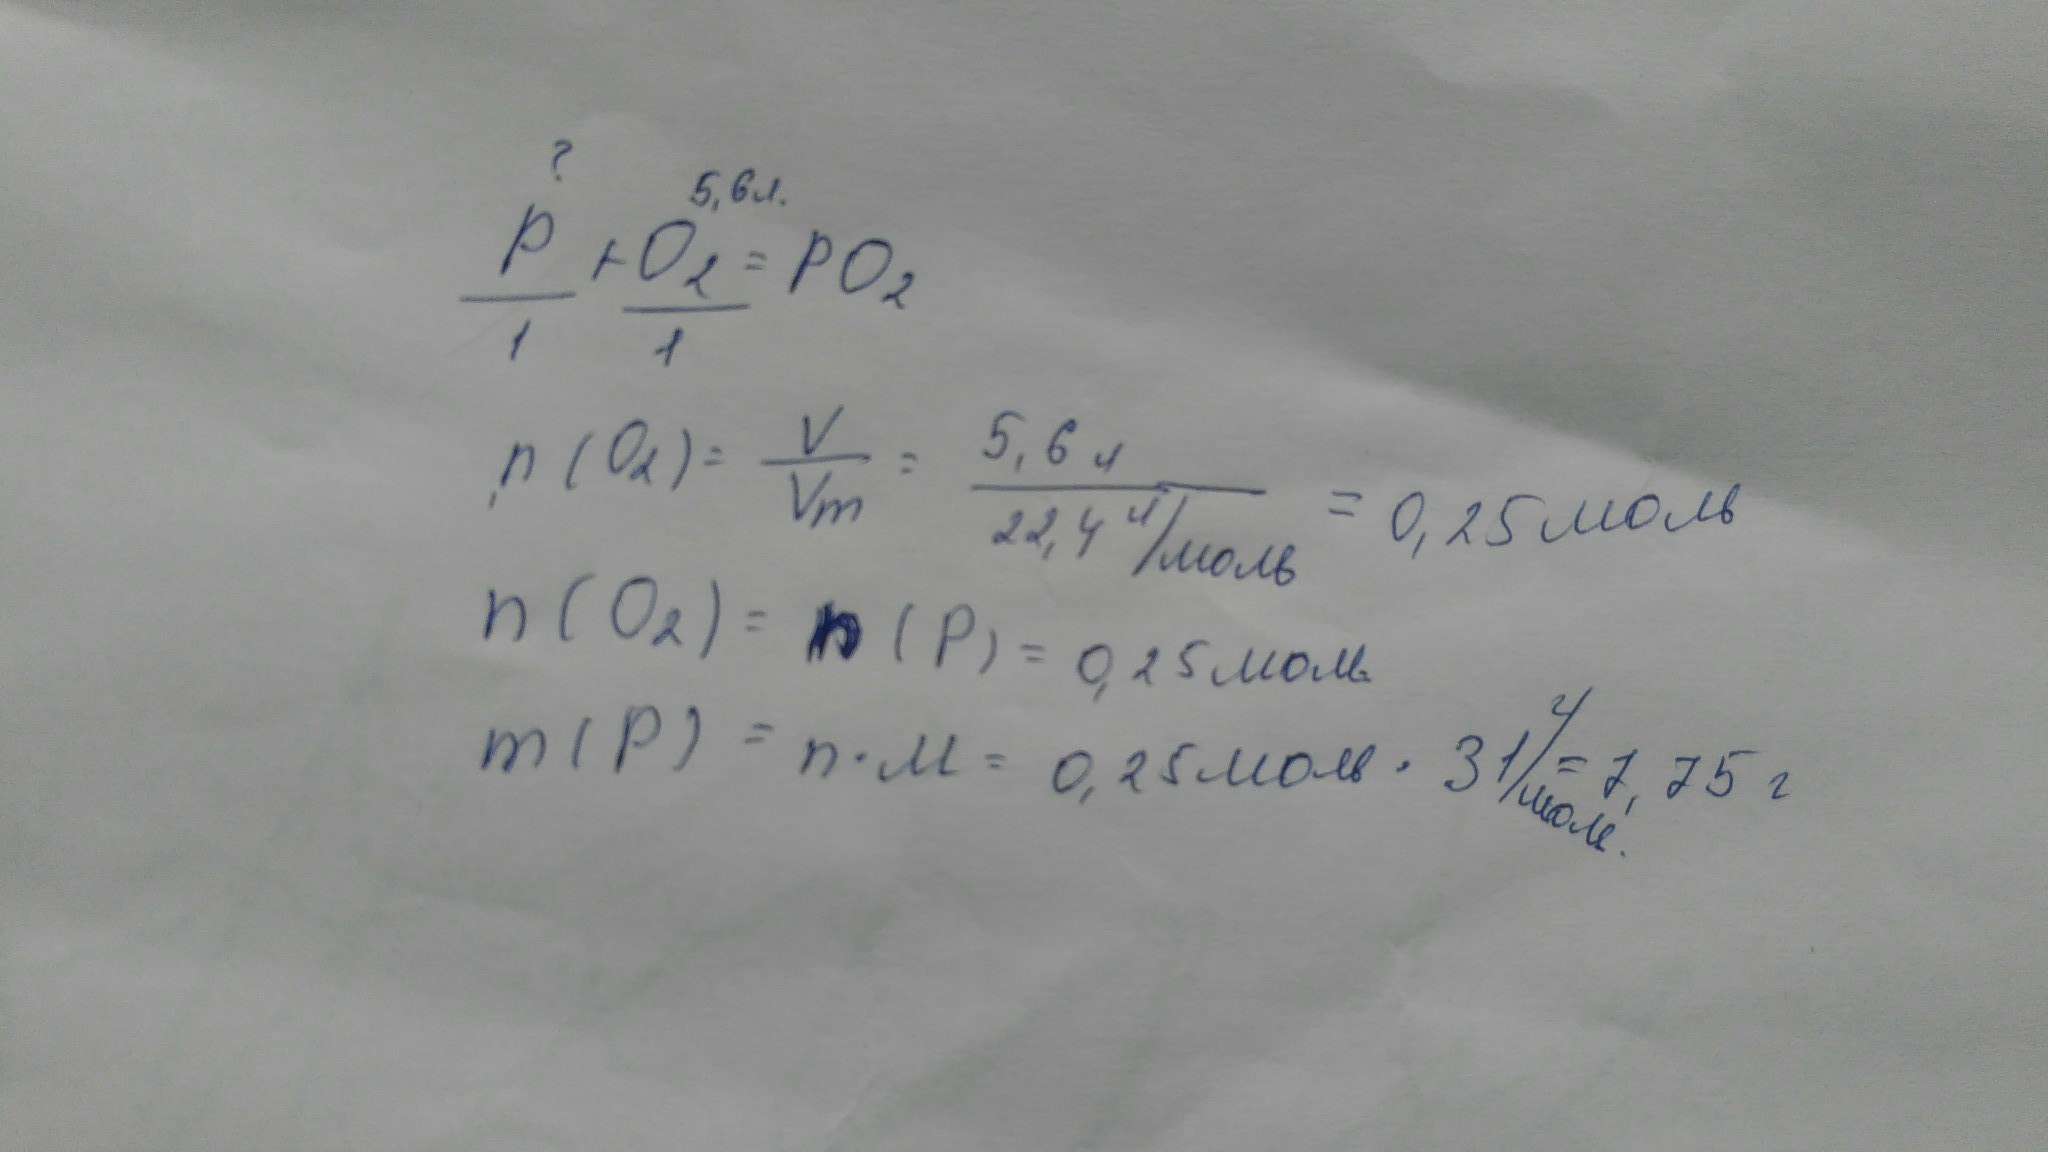 ?
5,6л.
P + O₂ = PO₂
1 1
n(O₂) = V/Vm = 5,6 л / 22,4 л/моль = 0,25 моль
n(O₂) = n(P) = 0,25 моль
m(P) = n·M = 0,25 моль · 31 г/моль. = 7,75 г